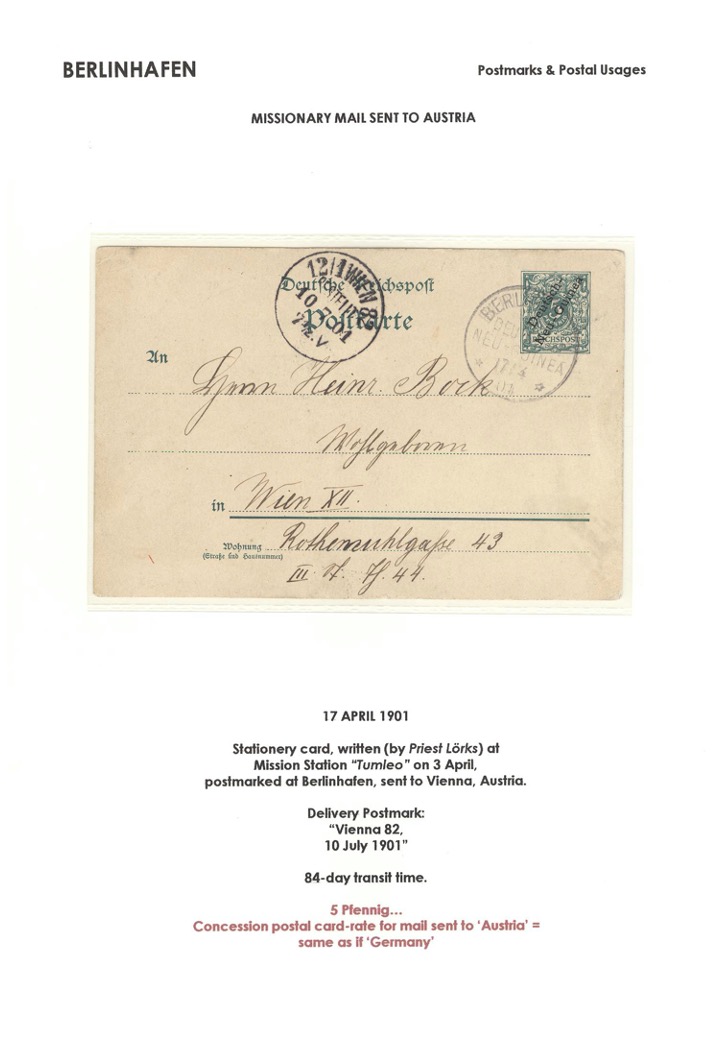 BERLINHAFEN
Postmarks & Postal Usages
MISSIONARY MAIL SENT TO AUSTRIA
Deutsche Reichspost
Postkarte
12/1 WIEN 82
10.7.01
7-8.V
Deutsch-
Neu-Guinea
REICHSPOST
17/4
01
An
Herrn Heinr. Bock
Wohlgeboren
in Wien XII.
Wohnung
(Straße und Hausnummer)
Rothemühlgaße 43
III. St. Th. 44.
17 APRIL 1901
Stationery card, written (by Priest Lörks) at
Mission Station “Tumleo” on 3 April,
postmarked at Berlinhafen, sent to Vienna, Austria.
Delivery Postmark:
“Vienna 82,
10 July 1901”
84-day transit time.
5 Pfennig...
Concession postal card-rate for mail sent to ‘Austria’ =
same as if ‘Germany’